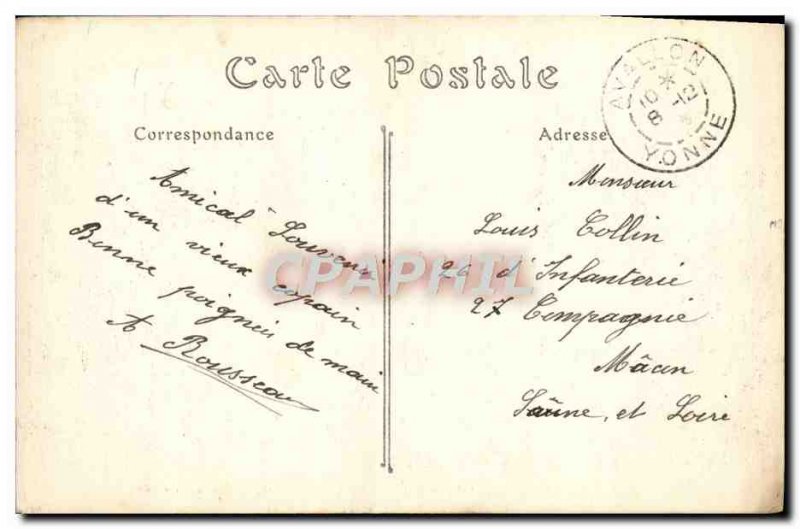 Carte Postale
Correspondance
Amical Souvenir
d'un vieux copain
Bonne poignée de main
A Rousseau
Adresse
Monsieur
Louis Collin
d'Infanterie
27 Compagnie
Mâcon
Saône et Loire
AVALLON
YONNE
CPAPHIL